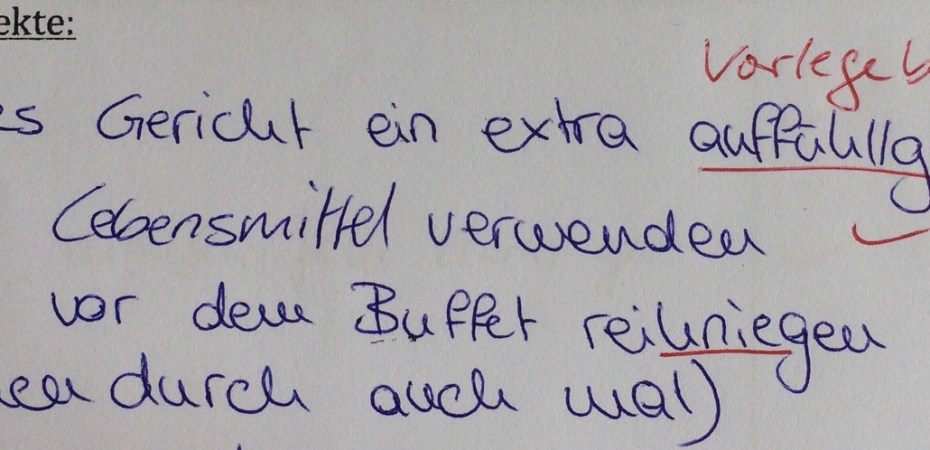 ekte:
Vorlegeb
es Gericht ein extra auffühllg
Lebensmittel verwenden
vor dem Buffet reihniegen
durch auch mal)